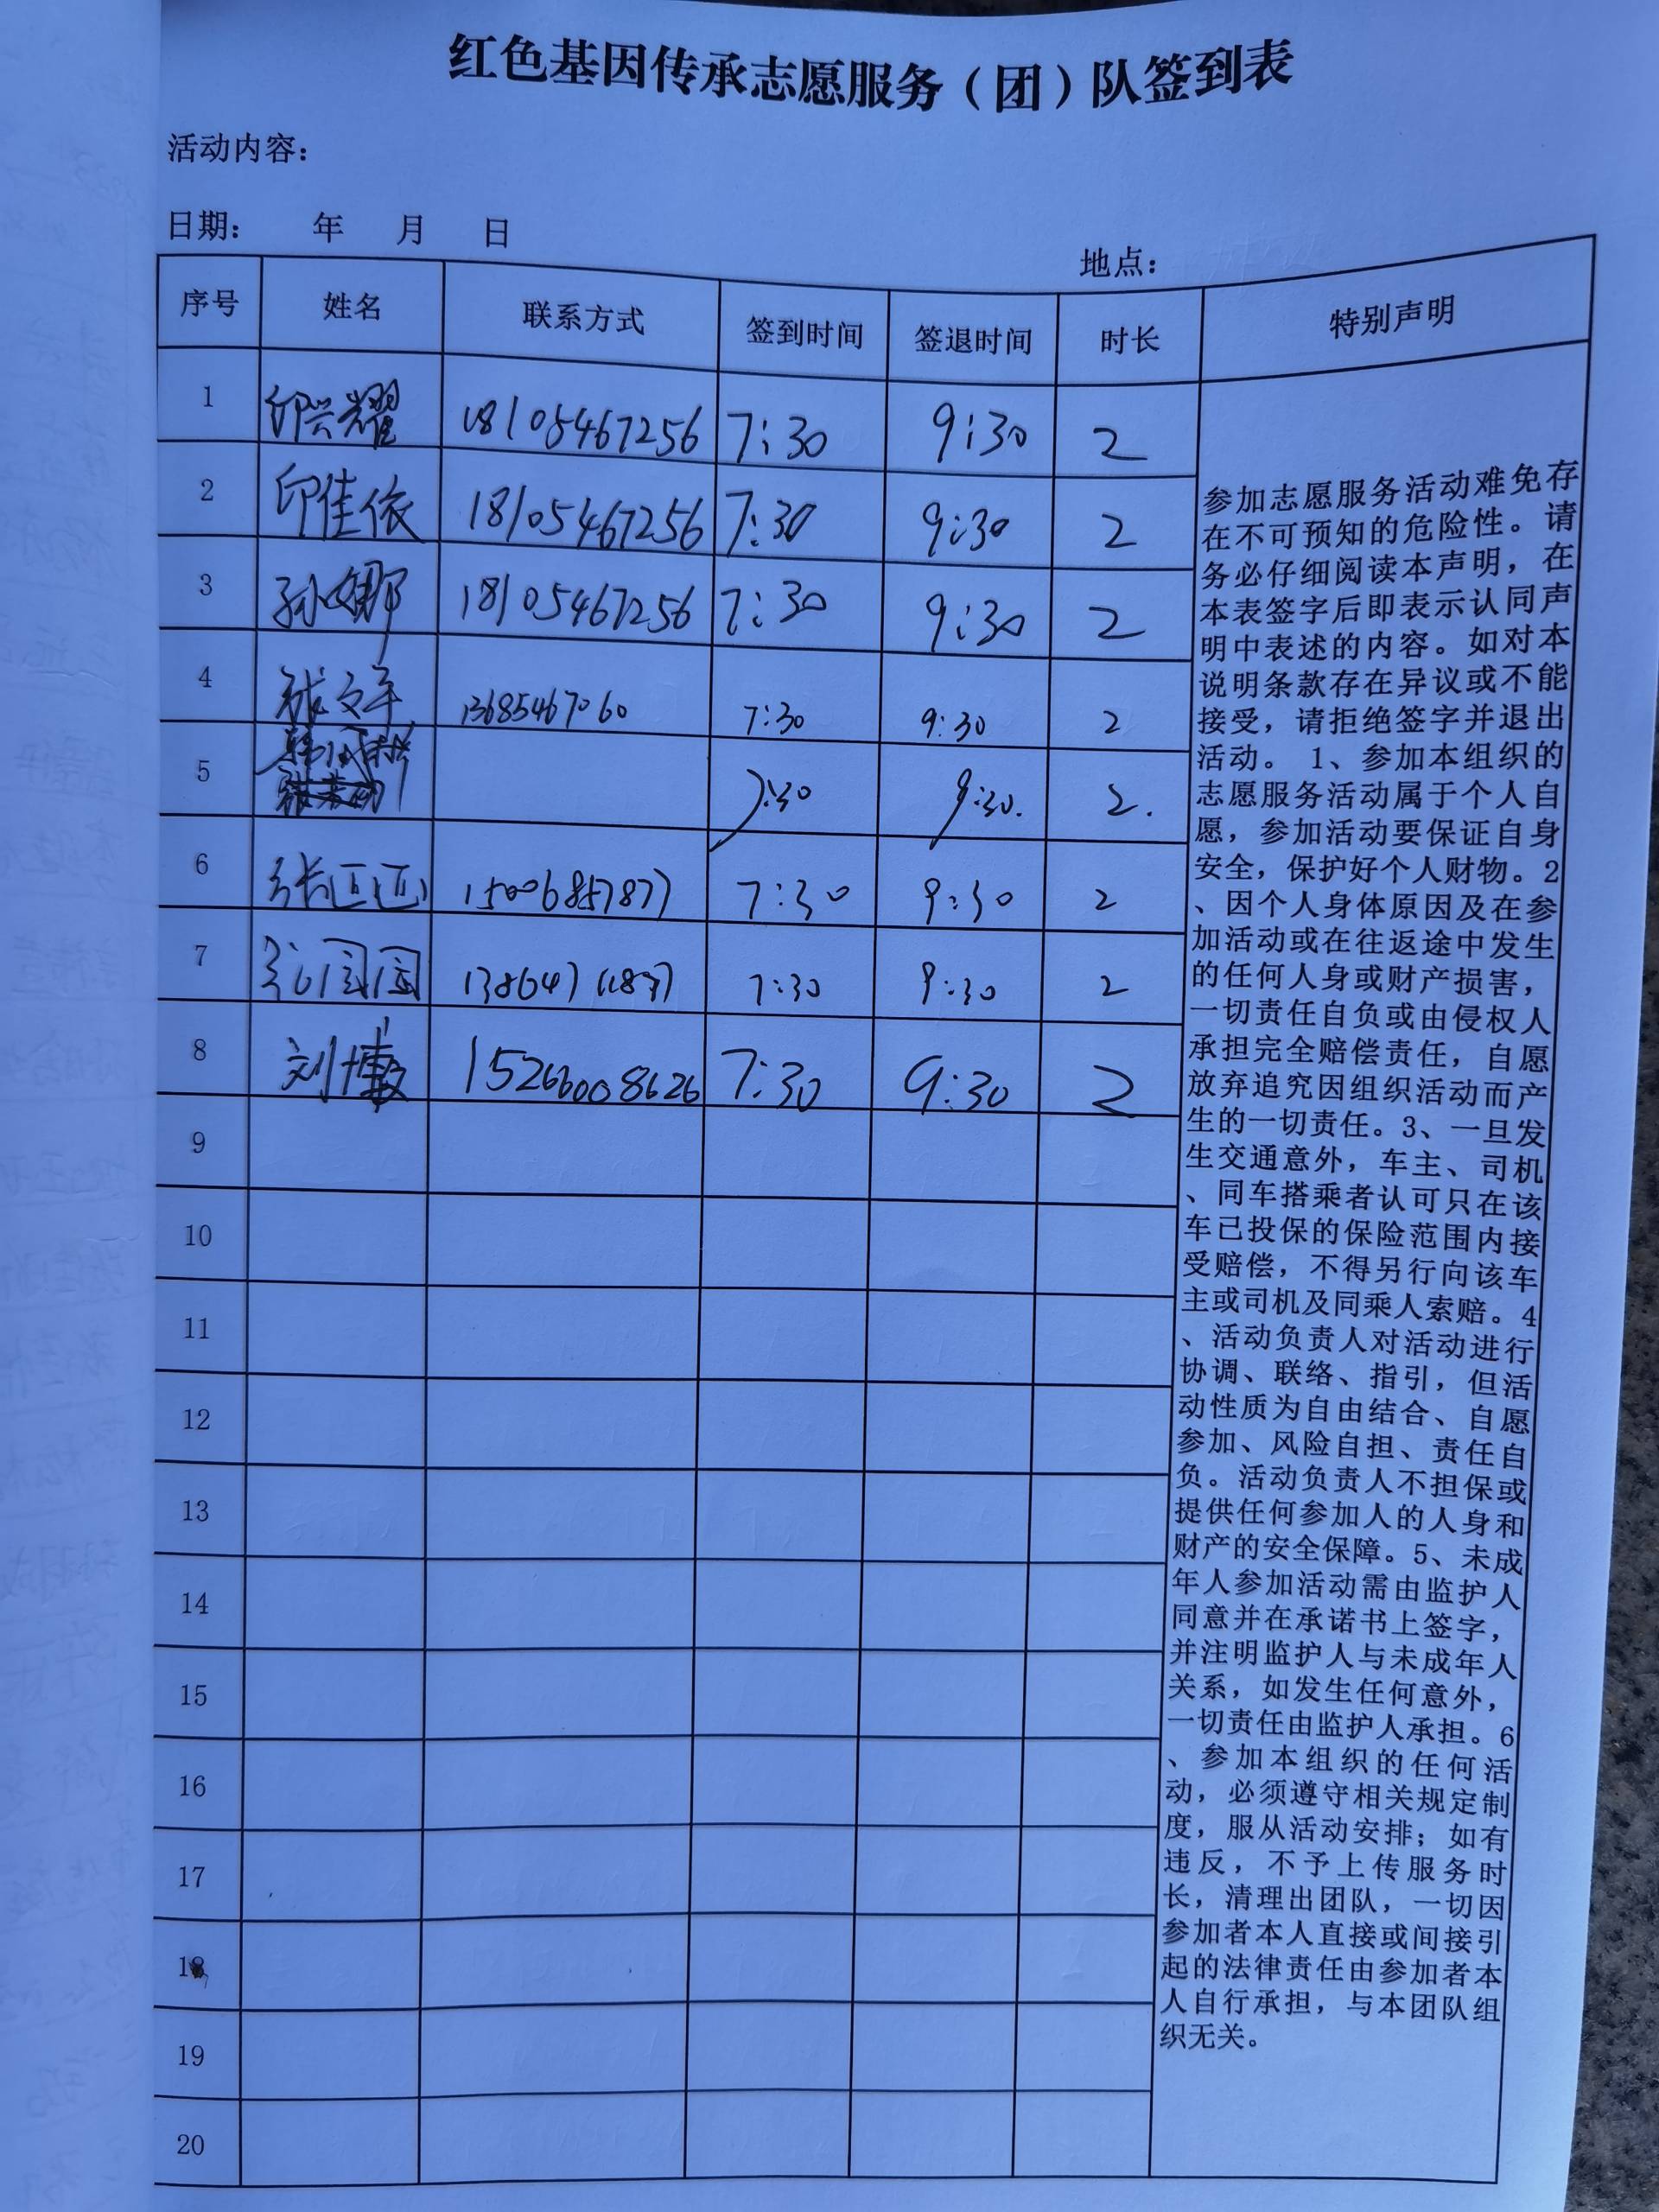 红色基因传承志愿服务（团）队签到表
活动内容：
日期： 年 月 日
地点：
序号 姓名 联系方式 签到时间 签退时间 时长 特别声明
1 印兴耀 18105467256 7:30 9:30 2
2 印佳依 18105467256 7:30 9:30 2
3 孙娜 18105467256 7:30 9:30 2
4 张文军 13685467060 7:30 9:30 2
5 7:30 9:30. 2.
6 张 15006857877 7:30 9:30 2
7 7:30 9:30 2
8 刘博 15266008626 7:30 9:30 2
9
10
11
12
13
14
15
16
17
18
19
20
参加志愿服务活动难免存
在不可预知的危险性。请
务必仔细阅读本声明，在
本表签字后即表示认同声
明中表述的内容。如对本
说明条款存在异议或不能
接受，请拒绝签字并退出
活动。 1、参加本组织的
志愿服务活动属于个人自
愿，参加活动要保证自身
安全，保护好个人财物。2
、因个人身体原因及在参
加活动或在往返途中发生
的任何人身或财产损害，
一切责任自负或由侵权人
承担完全赔偿责任，自愿
放弃追究因组织活动而产
生的一切责任。3、一旦发
生交通意外，车主、司机
、同车搭乘者认可只在该
车已投保的保险范围内接
受赔偿，不得另行向该车
主或司机及同乘人索赔。4
、活动负责人对活动进行
协调、联络、指引，但活
动性质为自由结合、自愿
参加、风险自担、责任自
负。活动负责人不担保或
提供任何参加人的人身和
财产的安全保障。5、未成
年人参加活动需由监护人
同意并在承诺书上签字，
并注明监护人与未成年人
关系，如发生任何意外，
一切责任由监护人承担。6
、参加本组织的任何活
动，必须遵守相关规定制
度，服从活动安排；如有
违反，不予上传服务时
长，清理出团队，一切因
参加者本人直接或间接引
起的法律责任由参加者本
人自行承担，与本团队组
织无关。